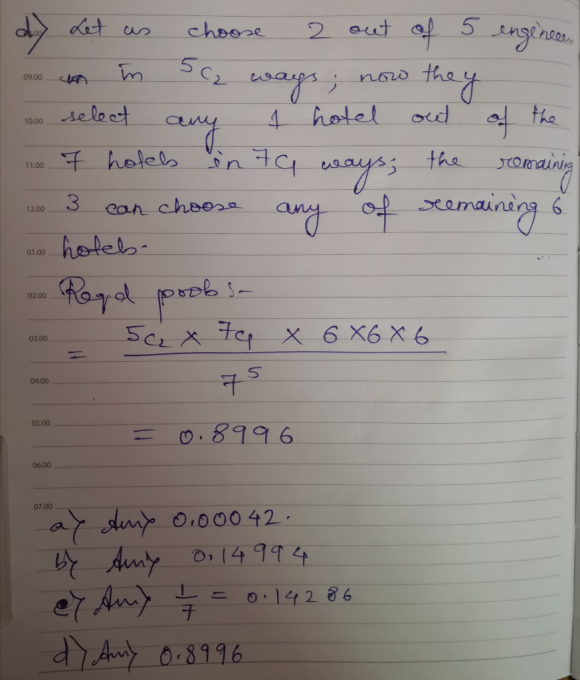 d) Let us choose 2 out of 5 engineer
09.00 in 5C2 ways; now they
10.00 select any 1 hotel out of the
11.00 7 hotels in 7C1 ways; the remaining
12.00 3 can choose any of remaining 6
01.00 hotels.
02.00 Reqd prob :-
03.00 = 5C2 × 7C1 × 6×6×6
04.00 7^5
05.00 = 0.8996
06.00
07.00
a) Ans) 0.00042.
b) Ans) 0.14994
c) Ans) 1/7 = 0.14286
d) Ans) 0.8996